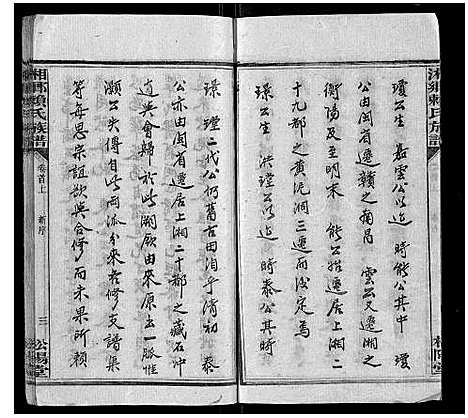 瓊公生 嘉雲公以迄 時能公其中 瓊
公由閩省遷贛之南昌 雲公又遷湘之
衡陽及至明末 能公推遷居上湘二
十九都之黄泥洞三遷而浅定焉
璟公生 洪瑝公以迄 時泰公其時
璟 瑝二代公仍舊古田洎乎清初 泰
公亦由閩省遷居上湘二十都之藏石冲
道與會歸於此湘厥由來原出一脈惟
灝公失傳自此兩派分來各修支譜集
等每思宗誼欲與合修而未果所賴
湘鄉賴氏族譜
卷首上 新序 三
松陽堂